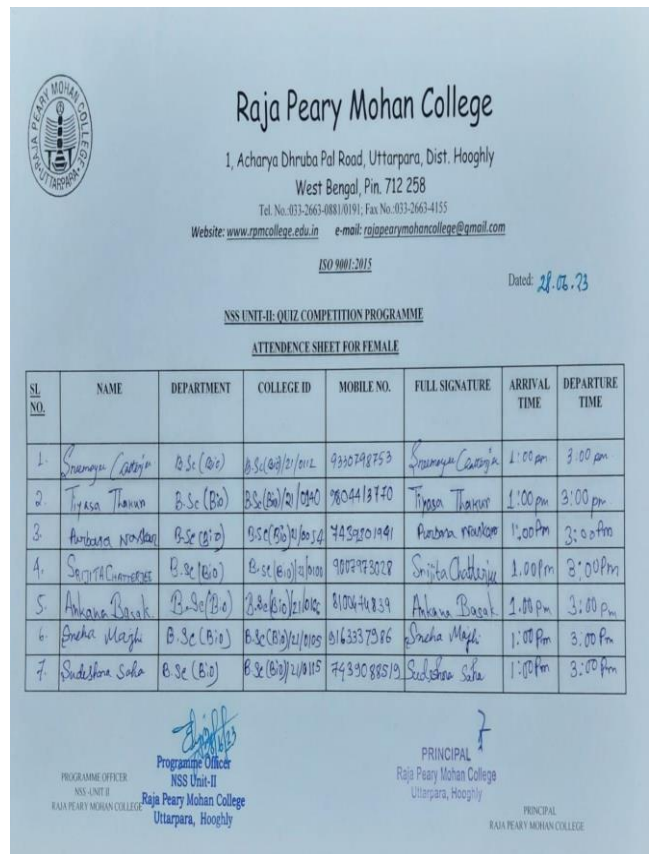 RAJA PEARY MOHAN COLLEGE
UTTARPARA
Raja Peary Mohan College
1, Acharya Dhruba Pal Road, Uttarpara, Dist. Hooghly
West Bengal, Pin. 712 258
Tel. No.:033-2663-0881/0191; Fax No.:033-2663-4155
Website: www.rpmcollege.edu.in e-mail: rajapearymohancollege@gmail.com
ISO 9001:2015
Dated: 28.06.23
NSS UNIT-II: QUIZ COMPETITION PROGRAMME
ATTENDENCE SHEET FOR FEMALE
SL NO. NAME DEPARTMENT COLLEGE ID MOBILE NO. FULL SIGNATURE ARRIVAL TIME DEPARTURE TIME
1. B.Sc (Bio) B.Sc(Bio)/21/0112 9330798753 1:00 pm 3:00 pm
2. Tiyasa Thakur B.Sc (Bio) B.Sc(Bio)/21/0140 9804413770 Tiyasa Thakur 1:00 pm 3:00 pm
3. Purbasa Naskar B.Sc (Bio) BSC(Bio)21/0034 7439301941 Purbasa Naskar 1:00 Pm 3:00 Pm
4. SRIJITA CHATTERJEE B.Sc (Bio) B.Sc(Bio)/21/0100 9007973028 Srijita Chatterjee 1.00 Pm 3:00 Pm
5. Ankana Basak B.Sc (Bio) B.Sc(Bio)/21/0106 8100674839 Ankana Basak 1.00 Pm 3:00 Pm
6. Sneha Majhi B.Sc (Bio) B.Sc(Bio)/21/0105 9163337986 Sneha Majhi 1:00 Pm 3:00 Pm
7. Sudeshna Saha B.Sc (Bio) B.Sc(Bio)/21/0115 7439088519 Sudeshna Saha 1:00 Pm 3:00 Pm
Programme Officer
NSS Unit-II
Raja Peary Mohan College
Uttarpara, Hooghly
PROGRAMME OFFICER
NSS -UNIT II
RAJA PEARY MOHAN COLLEGE
PRINCIPAL
Raja Peary Mohan College
Uttarpara, Hooghly
PRINCIPAL
RAJA PEARY MOHAN COLLEGE